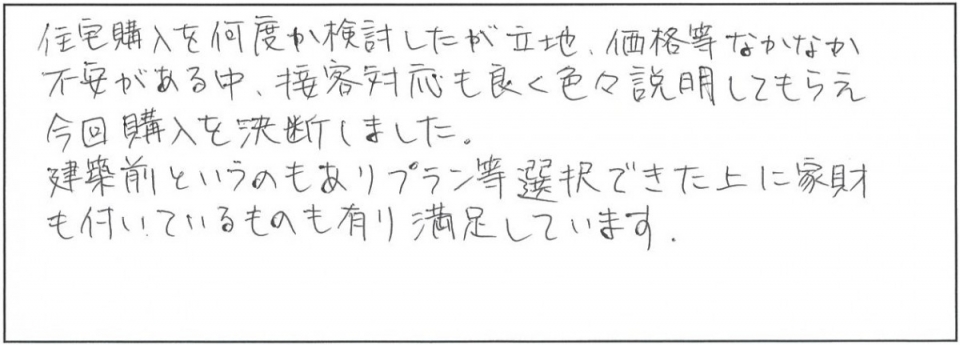 住宅購入を何度か検討したが立地、価格等なかなか
不安がある中、接客対応も良く色々説明してもらえ
今回購入を決断しました。
建築前というのもありプラン等選択できた上に家財
も付いているものも有り満足しています.